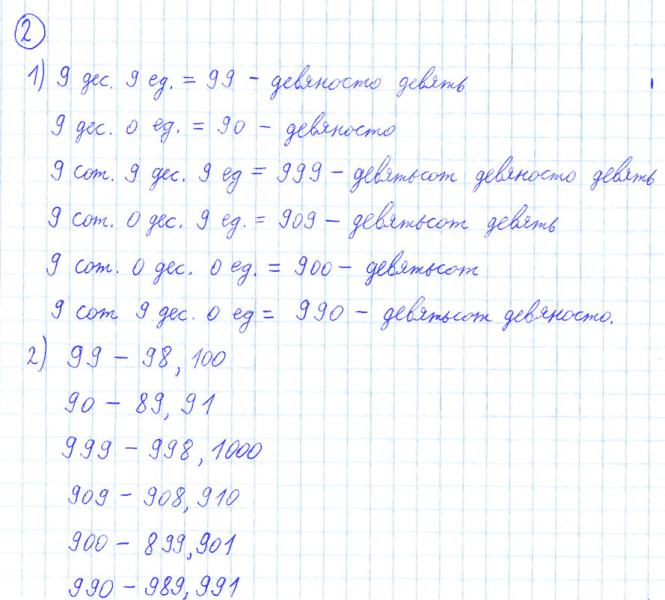 2
1) 9 дес. 9 ед. = 99 - девяносто девять
9 дес. 0 ед. = 90 - девяносто
9 сот. 9 дес. 9 ед = 999 - девятьсот девяносто девять
9 сот. 0 дес. 9 ед. = 909 - девятьсот девять
9 сот. 0 дес. 0 ед. = 900 - девятьсот
9 сот 9 дес. 0 ед = 990 - девятьсот девяносто.
2) 99 - 98, 100
90 - 89, 91
999 - 998, 1000
909 - 908, 910
900 - 899, 901
990 - 989, 991